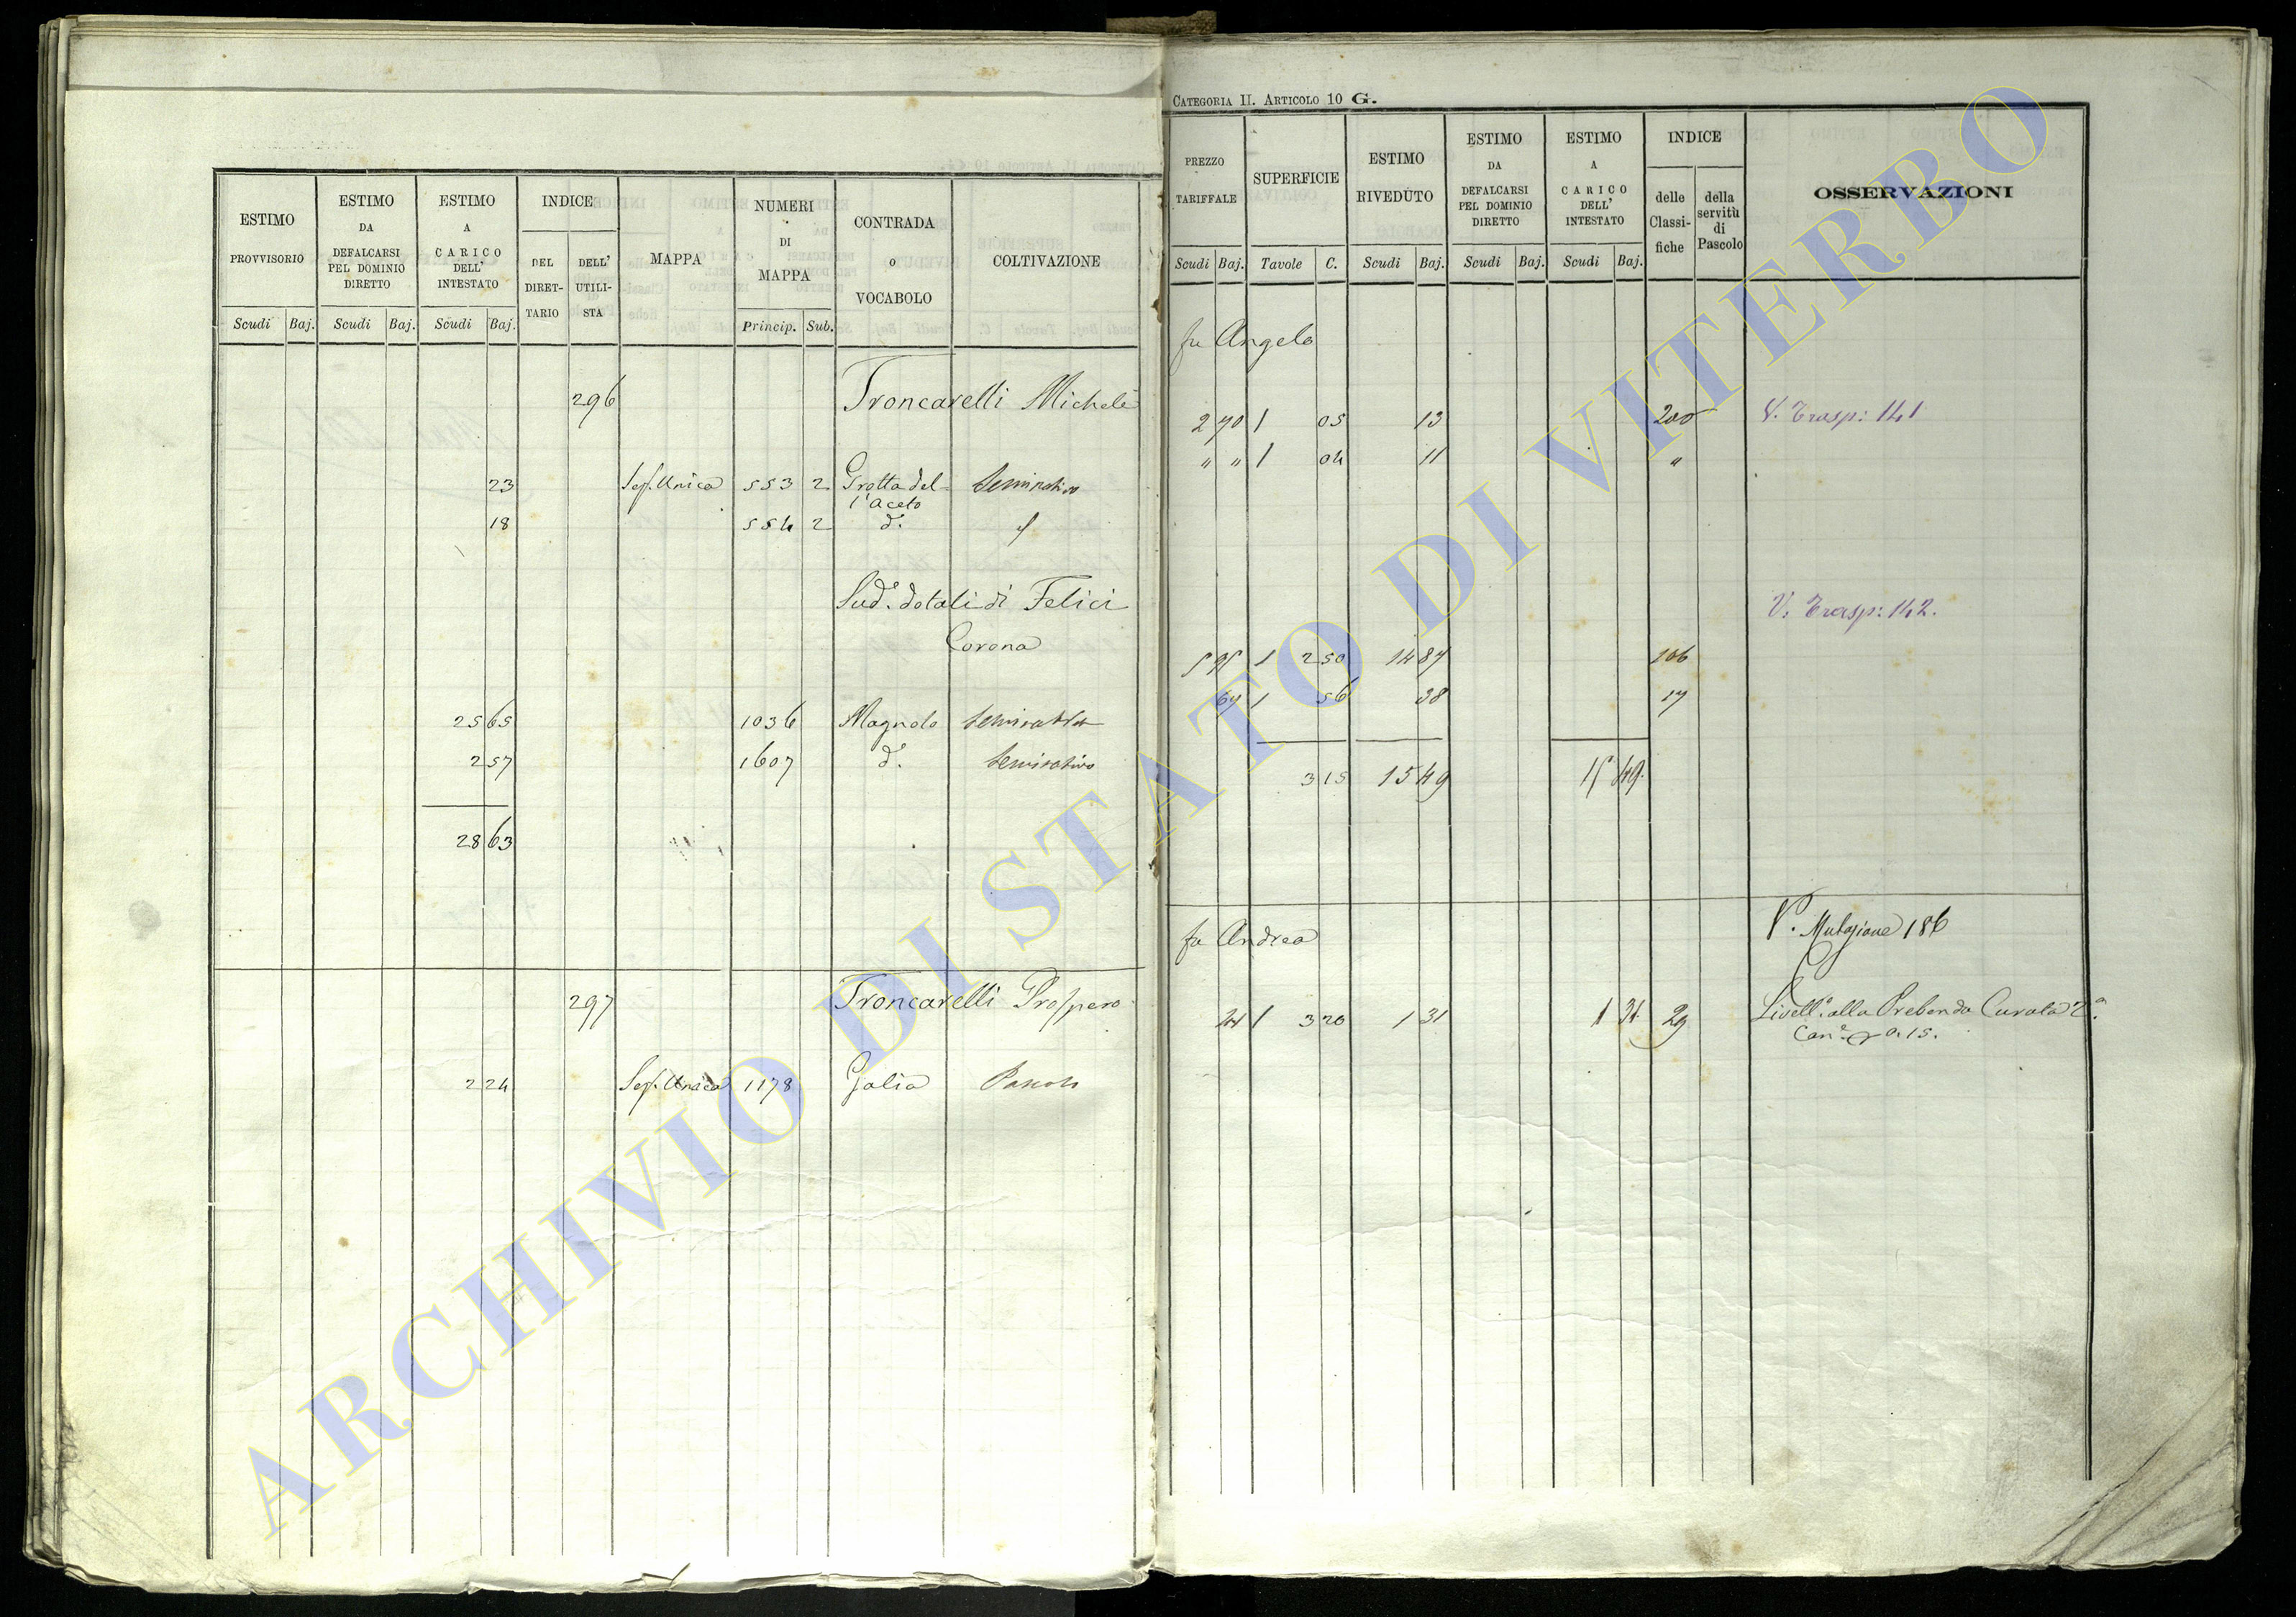 ESTIMO
PROVVISORIO
ESTIMO
DA
DEFALCARSI
PEL DOMINIO
DIRETTO
ESTIMO
A
CARICO
DELL'
INTESTATO
INDICE
DEL
DIRET-
TARIO
DELL'
UTILI-
STA
MAPPA
NUMERI
DI
MAPPA
CONTRADA
o
VOCABOLO
COLTIVAZIONE
Scudi Baj. Scudi Baj. Scudi Baj. Princip. Sub.
296 Troncarelli Michele
23 Sez. Unica 553 2 Grotta del- Seminativo
l'aceto
18 554 2 d.o
Sud.o dotali di Felici
Corona
25 65 1036 Magnolo
2 57 1607 d.o Seminativo
28 63
297 Troncarelli Prospero
2 24 Sez. Unica 1178 Galia Pascolo
CATEGORIA II. ARTICOLO 10 G.
PREZZO
TARIFFALE
SUPERFICIE
ESTIMO
RIVEDUTO
ESTIMO
DA
DEFALCARSI
PEL DOMINIO
DIRETTO
ESTIMO
A
CARICO
DELL'
INTESTATO
INDICE
delle
Classi-
fiche
della
servitù
di
Pascolo
OSSERVAZIONI
Scudi Baj. Tavole C. Scudi Baj. Scudi Baj. Scudi Baj.
fu Angelo
2 70 1 05 13 200 V. Trasp: 141
" " 1 04 11 "
V. Trasp: 142.
5 95 1 2 50 14 87 106
67 1 56 38 17
3 15 15 49 15 49
fu Andrea
V. Mutazione 186
41 1 3 20 1 31 1 31 29 Livell.o alla Prebenda Curata 2.a
Can.e 15.
ARCHIVIO DI STATO DI VITERBO